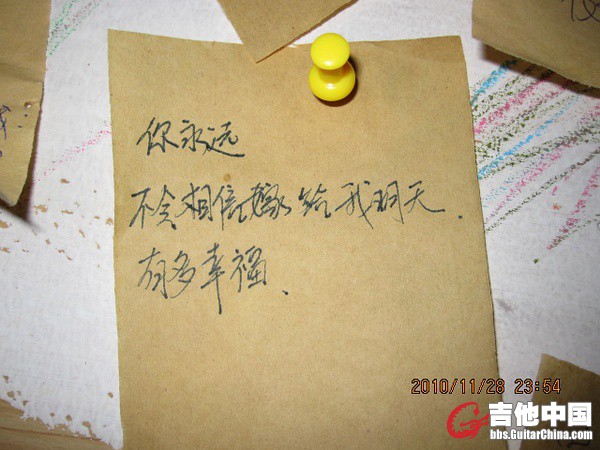 你永远
不会相信嫁给我明天.
有多幸福、
2010/11/28 23:54
吉他中国
bbs.GuitarChina.com